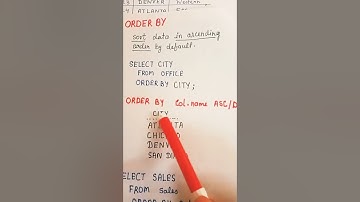 DENVER
ATLANTA
ORDER BY
sort data in ascending
order by default.
SELECT CITY
FROM OFFICE
ORDER BY CITY;
ORDER BY Col.name ASC/D
CITY
CHIC
DENV
SAN DI
SELECT SALES
FROM Sales